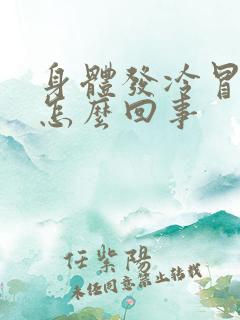 身體發冷冒
怎麼回事
任紫陽
未经同意禁止转载